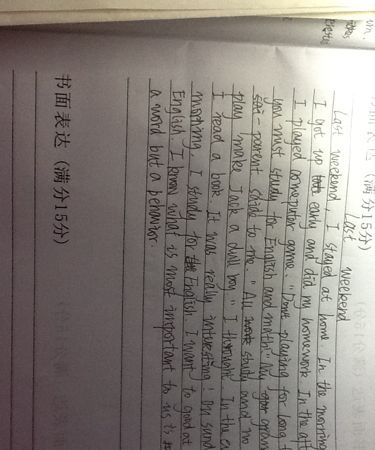 书面表达（满分15分）
Last weekend
Last weekend, I stayed at home In the morning
I got up early and did my homework In the aft
I played computer game. "Don't playing for long t
you must study for English and math." My gran
parent said to me. "All work study and no
play make Jack a dull boy." I In the e
I read a book It was really interesting! On sund
morning, I study for English I want to good at
English I know what is most important to us is
a word but a behavior.
书面表达（满分15分）